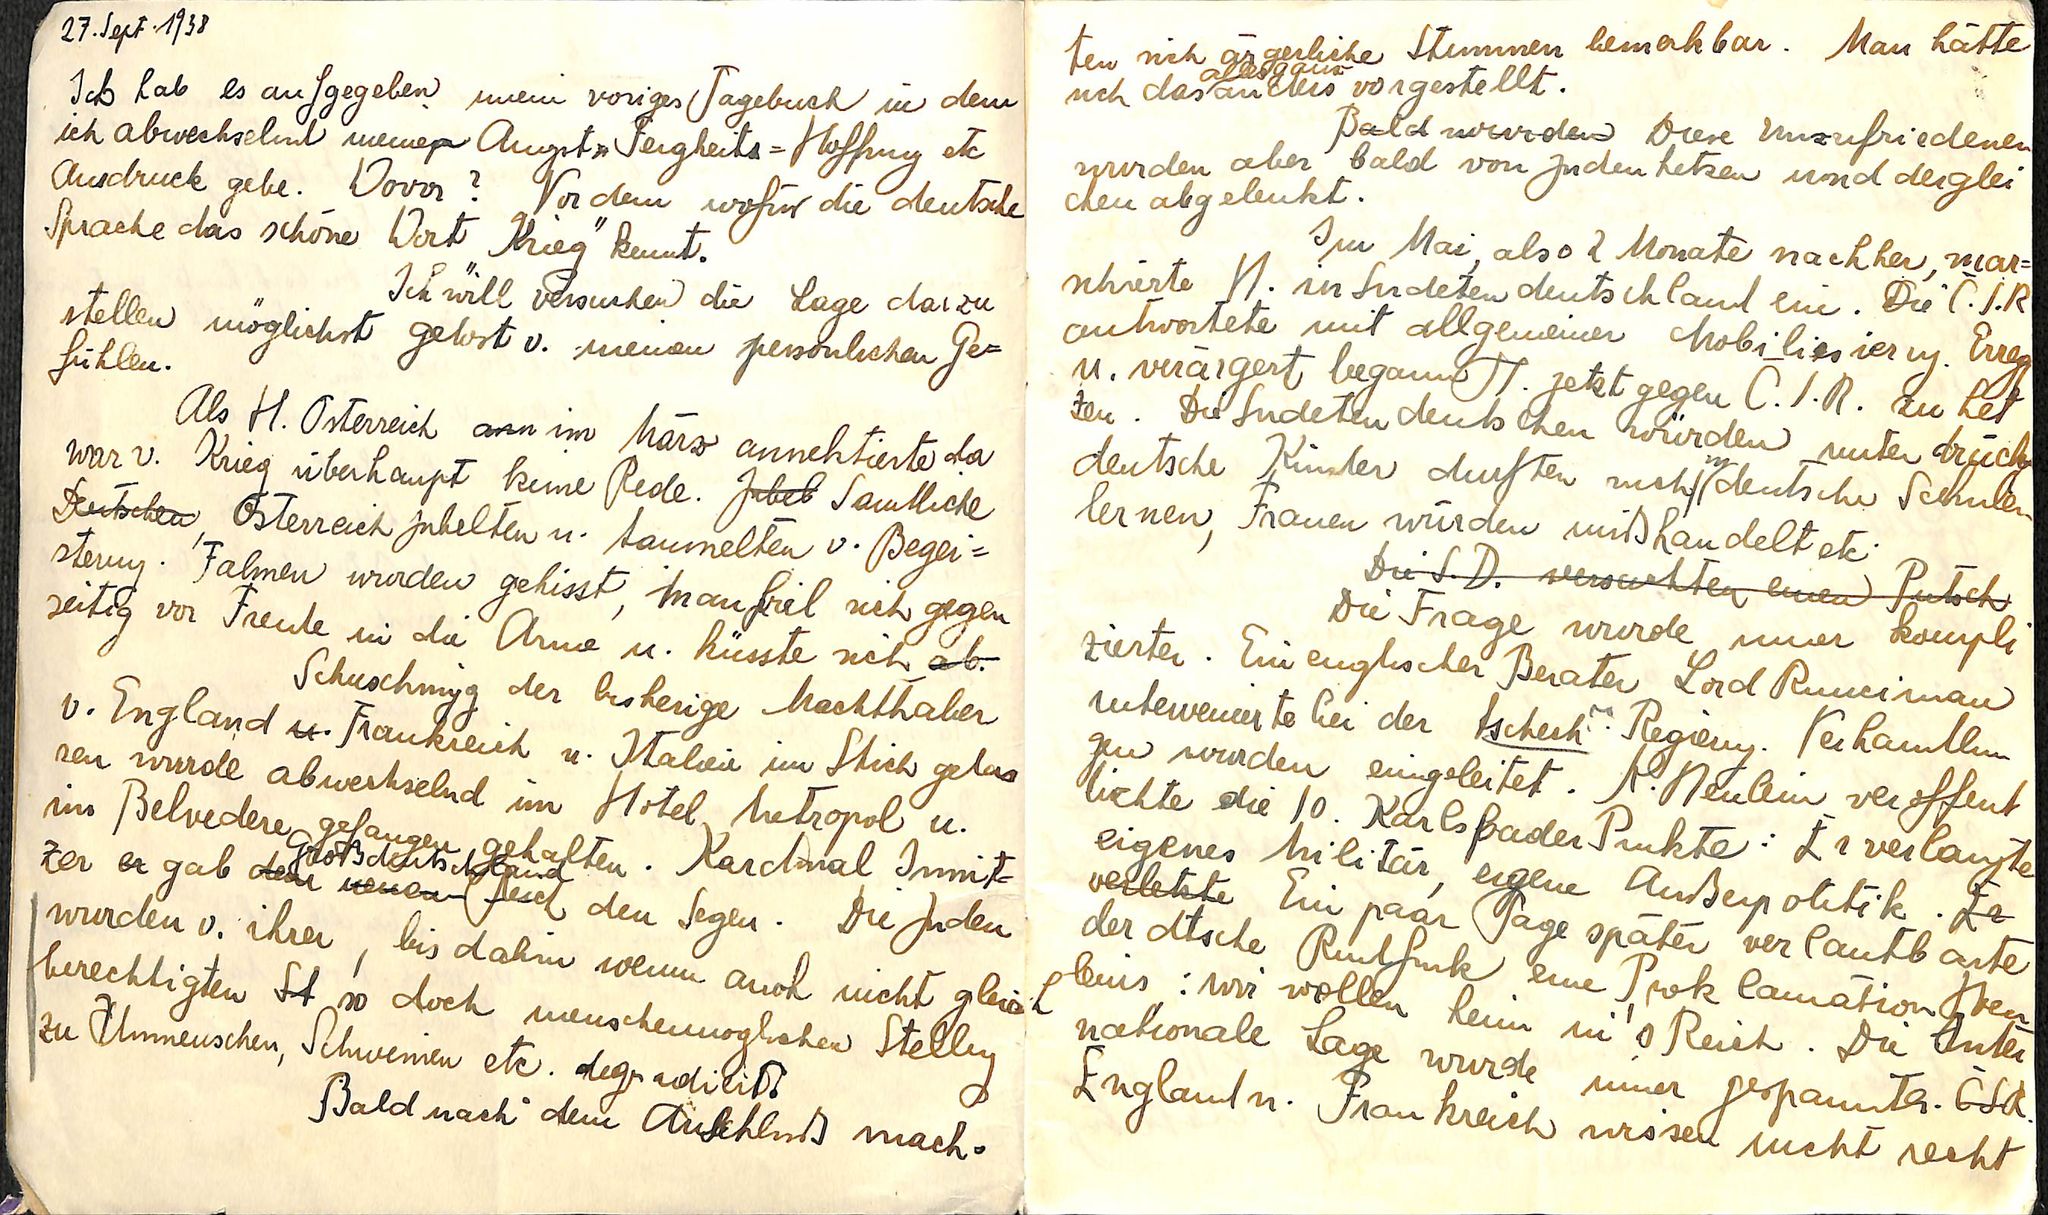 27. Sept. 1938
Ich hab es aufgegeben mein voriges Tagebuch in dem
ich abwechselnd meiner Angst= Feigheits= Hoffnug etc
Ausdruck gebe. Wovor? Vor dem wofür die deutsche
Sprache das schöne Wort "Krieg" kennt.
Ich will versuchen die Lage darzu
stellen möglichst gelöst v. meinen persönlichen Ge=
fühlen.
Als H. Österreich ann im März annektierte da
war v. Krieg überhaupt keine Rede. Jubel Samtliche
Deutschen, Österreich jubelten u. taumelten v. Begei=
sterug. Fahnen wurden gehisst, man fiel sich gegen
seitig vor Freude in die Arme u. küsste sich ab.
Schuschnigg der bisherige Machthaber
v. England u. Frankreich u. Italien im Stich gelas
sen wurde abwechselnd im Hotel Metropol u.
im Belvedere gefangen gehalten. Kardinal Innit=
Großdeutschland
zer er gab dem neuen Reich den Segen. Die Juden
wurden v. ihrer, bis dahin wenn auch nicht gleich
berechtigten St so doch menschenmöglichen Stellug
zu Unmenschen, Schweinen etc. degradiert.
Bald nach dem Anschluß mach-
ten sich ärgerliche Stimmen bemerkbar. Man hätte
alles ganz
sich das anders vorgestellt.
Bald wurden Diese Unzufriedenen
wurden aber bald von Judenhetzen und derglei
chen abgelenkt.
Im Mai, also 2 Monate nachher, mar=
schierte H. in Sudetendeutschland ein. Die Č.S.R
antwortete mit allgemeiner Mobilisierug. Erregt
u. verärgert begann H. jetzt gegen Č.S.R. zu het
zen. Die Sudetendeutschen würden unterdrückt
deutsche Kinder durften nicht in deutsche Schulen
lernen, Frauen würden mißhandelt etc.
Die S.D. versuchten einen Putsch
Die Frage wurde imer kompli
zierter. Ein englischer Berater Lord Runciman
intervenierte bei der tschech. Regierug. Verhandlun
gen wurden eingeleitet. K. Henlein veröffent
lichte die 10. Karlsbader Punkte: Er verlangte
eigenes Militär, eigene Außenpolitik. Er
verletzte Ein paar Tage später verlautbarte
der dtsche Rundfunk eine Proklamation Hen
leins: wir wollen heim in's Reich. Die Inter
nationale Lage wurde imer gespannter. ČSR.
England u. Frankreich wissen nicht recht